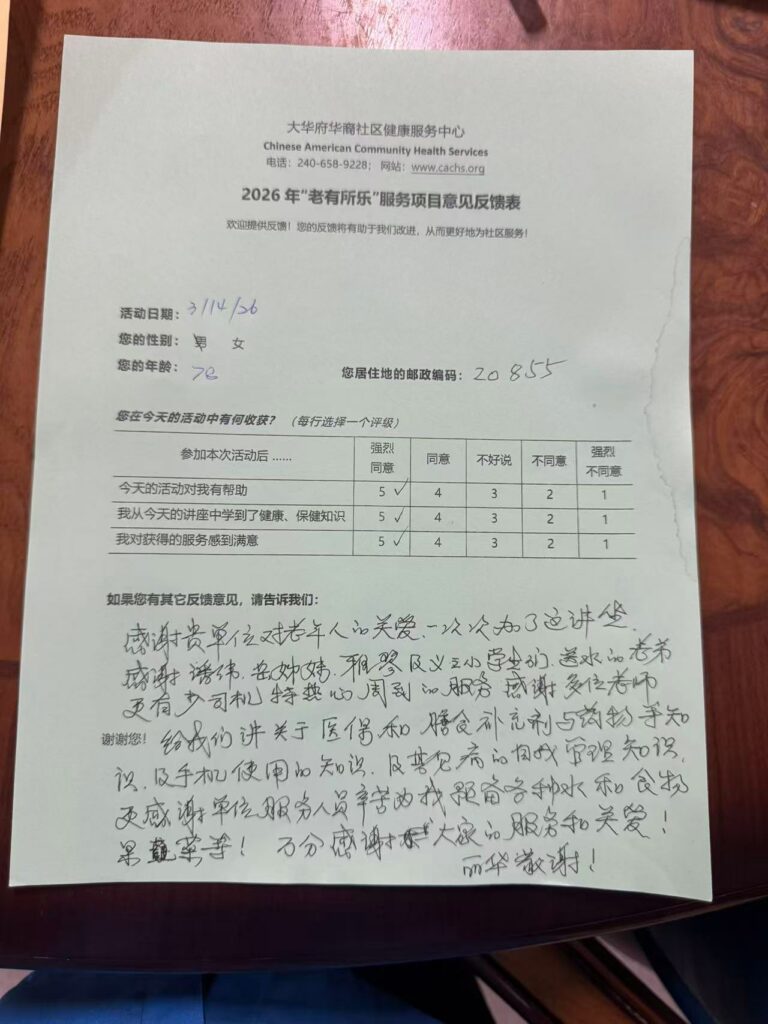 大华府华裔社区健康服务中心
Chinese American Community Health Services
电话：240-658-9228； 网站：www.cachs.org
2026 年“老有所乐”服务项目意见反馈表
欢迎提供反馈！您的反馈将有助于我们改进，从而更好地为社区服务！
活动日期： 3/14/26
您的性别： 男 女
您的年龄： 78 您居住地的邮政编码： 20855
您在今天的活动中有何收获？ （每行选择一个评级）
参加本次活动后 …… 强烈同意 同意 不好说 不同意 强烈不同意
今天的活动对我有帮助 5 ✓ 4 3 2 1
我从今天的讲座中学到了健康、保健知识 5 ✓ 4 3 2 1
我对获得的服务感到满意 5 ✓ 4 3 2 1
如果您有其它反馈意见，请告诉我们：
感谢贵单位对老年人的关爱.一次次办了这讲坐.
感谢 姊妹. 及义工小学生们.送水的老弟
更有少司机特热心周到的服务 感谢多位老师
谢谢您！ 给我们讲关于医保和膳食补充剂与药物等知
识.及手机使用的知识.及常见病的自我管理知识.
更感谢单位服务人员辛苦为我预备各种水和食物
果 菜等！ 万分感谢 大家的服务和关爱！
丽华敬谢！